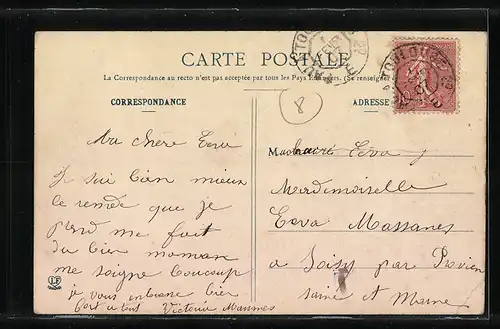 CARTE POSTALE
La Correspondance au recto n'est pas acceptée par tous les Pays Étrangers. (Se renseigner
CORRESPONDANCE
ADRESSE
8
Ma chere Erva
Je sui bien mieux
le remede que je
prend me fait
du bien maman
me soigne coucoup
je vous enbrane bien
fort a tous Victoria Massanes
Erva
Mademoiselle
Erva Massanes
a Soisy par Provien
saine et Marne
TOULOUSE
LF